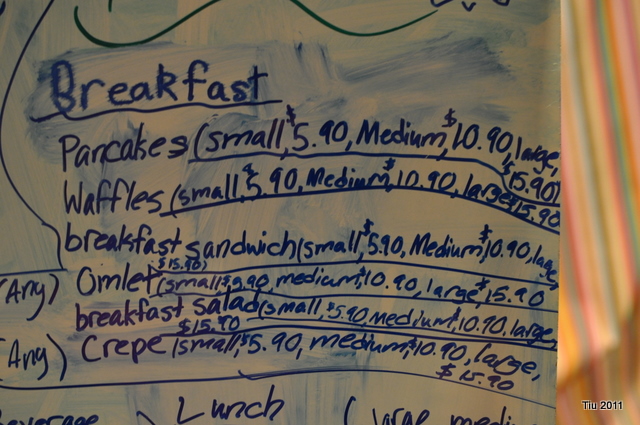 Breakfast
Pancakes (small, $5.90, Medium, $10.90, large, $15.90)
Waffles (small, $5.90, Medium, $10.90, large, $15.90
breakfast sandwich (small, $5.90, Medium, $10.90, large, $15.90)
(Any) Omlet (small, $5.90, medium, $10.90, large, $15.90
breakfast salad (small, $5.90, medium, $10.90, large, $15.90
(Any) Crepe (small, $5.90, medium, $10.90, large, $15.90
Lunch
(large
Tiu 2011